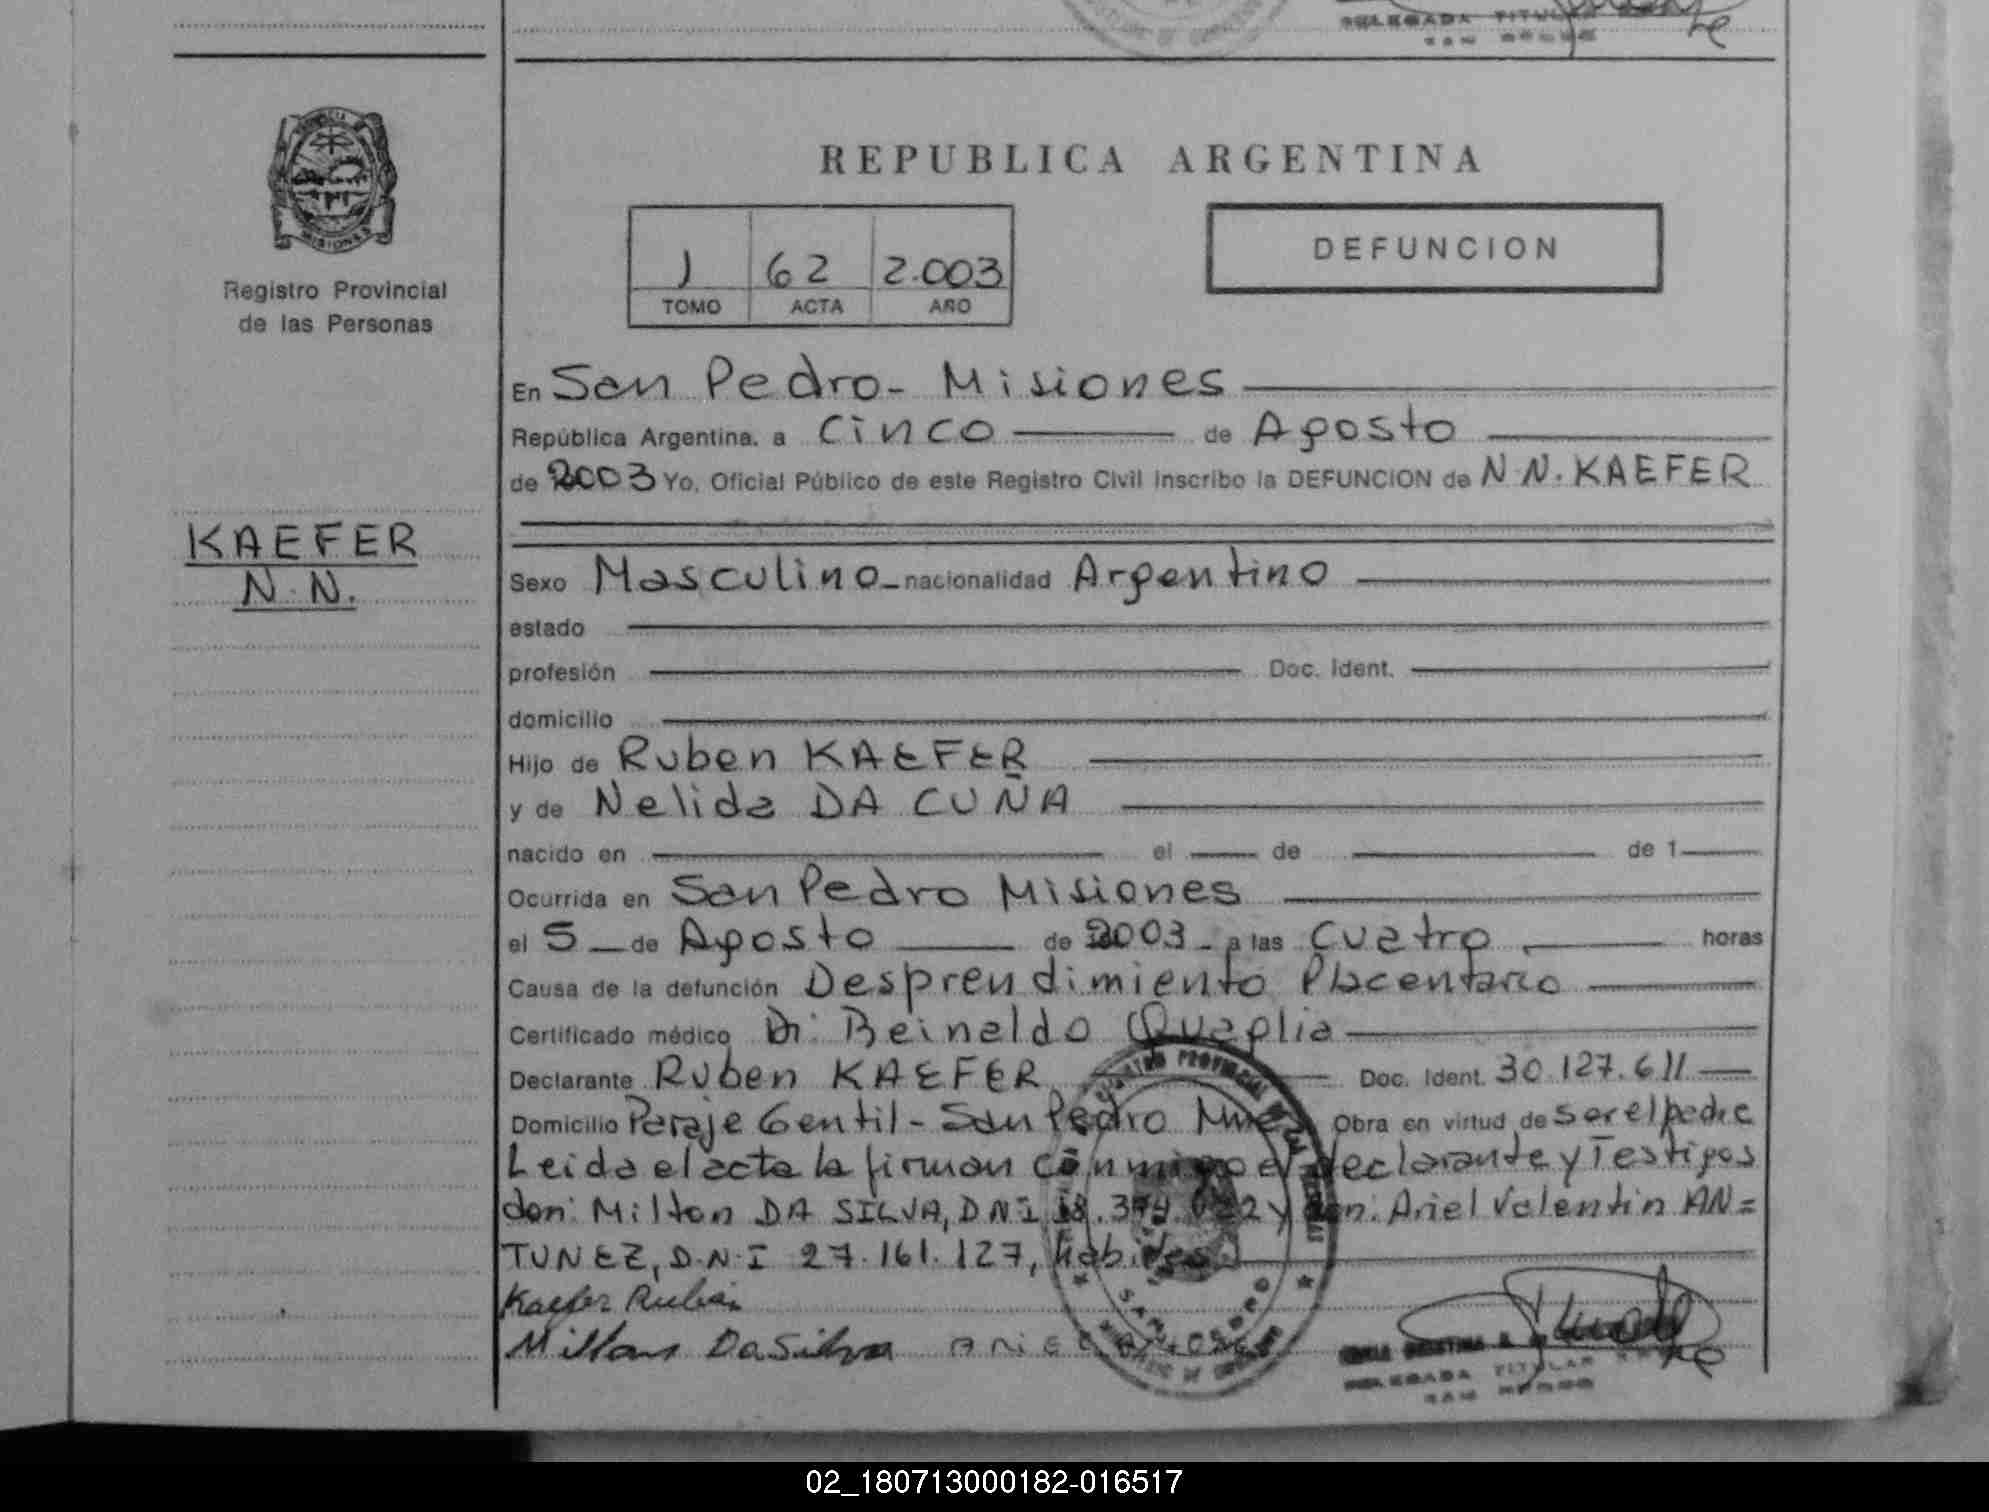 DELEGADA TITULAR
SAN PEDRO
REPUBLICA ARGENTINA
DEFUNCION
1 62 2.003
TOMO ACTA AÑO
Registro Provincial
de las Personas
MISIONES
En San Pedro - Misiones
República Argentina, a Cinco de Agosto
de 2003 Yo, Oficial Público de este Registro Civil inscribo la DEFUNCION de N.N. KAEFER
KAEFER
N.N.
Sexo Masculino - nacionalidad Argentino
estado
profesión Doc. Ident.
domicilio
Hijo de Ruben KAEFER
y de Nelida DA CUÑA
nacido en el de de 1
Ocurrida en San Pedro Misiones
el 5 de Agosto de 2003 - a las Cuatro horas
Causa de la defunción Desprendimiento Placentario
Certificado médico Dr: Beinaldo Quaglia
Declarante Ruben KAEFER Doc. Ident. 30.127.611
Domicilio Paraje Gentil - San Pedro Mnes Obra en virtud de ser el padre
Leida el acta la firman conmigo el declarante y Testigos
don: Milton DA SILVA, D.N.I 18. y don: Ariel Valentin AN=
TUNEZ, D.N.I 27.161.127, habiles
Kaefer Ruben
Milton Da Silva ARIEL
DELEGADA TITULAR
SAN PEDRO
02_180713000182-016517